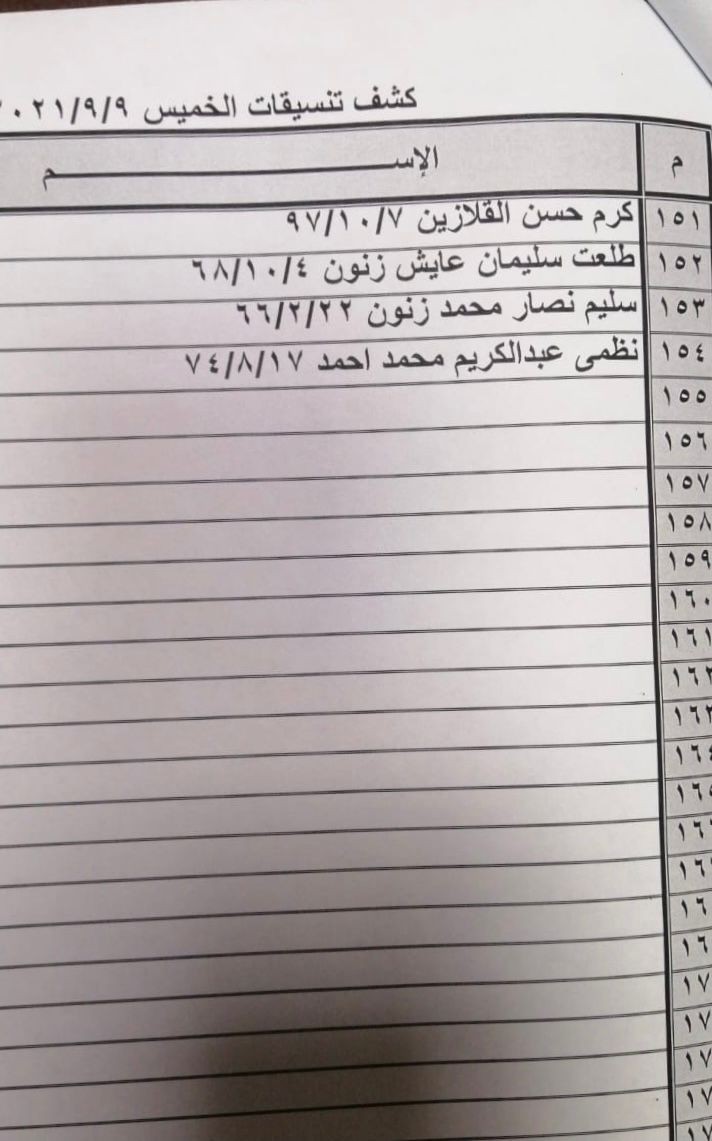 كشف تنسيقات الخميس ٢٠٢١/٩/٩
م الإســـــــــم
١٥١ كرم حسن القلازين ٩٧/١٠/٧
١٥٢ طلعت سليمان عايش زنون ٦٨/١٠/٤
١٥٣ سليم نصار محمد زنون ٦٦/٢/٢٢
١٥٤ نظمى عبدالكريم محمد احمد ٧٤/٨/١٧
١٥٥
١٥٦
١٥٧
١٥٨
١٥٩
١٦٠
١٦١
١٦٢
١٦٣
١٦٤
١٦٥